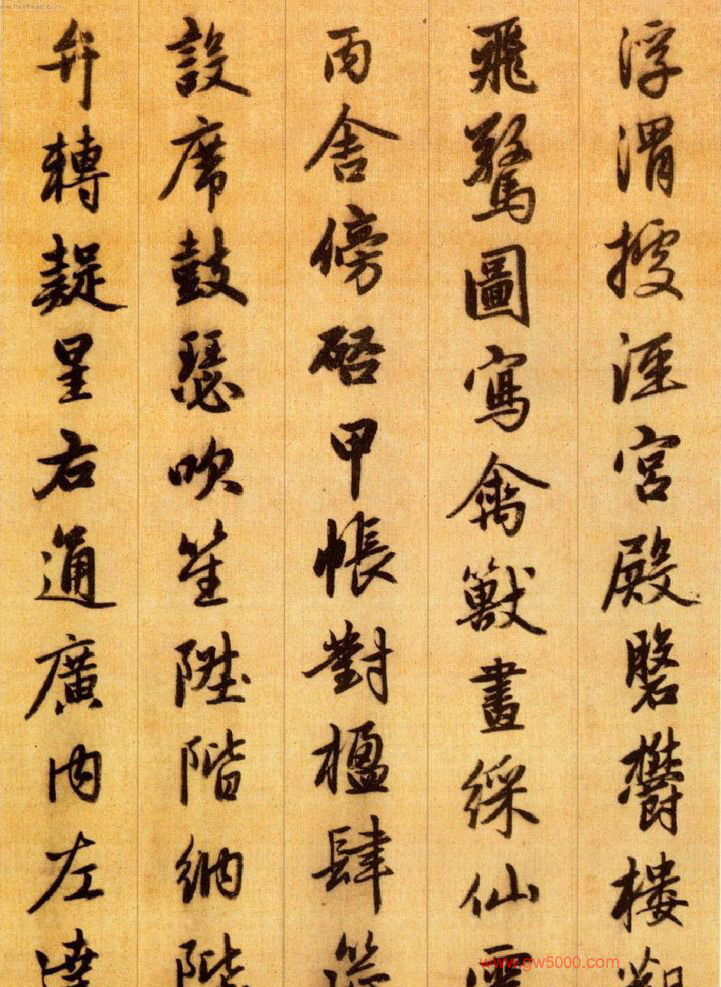 浮渭據涇宮殿磐鬱樓觀
飛驚圖寫禽獸畫綵仙靈
丙舍傍啓甲帳對楹肆筵
設席鼓瑟吹笙陞階納陛
弁轉疑星右通廣內左達
www.gw5000.com